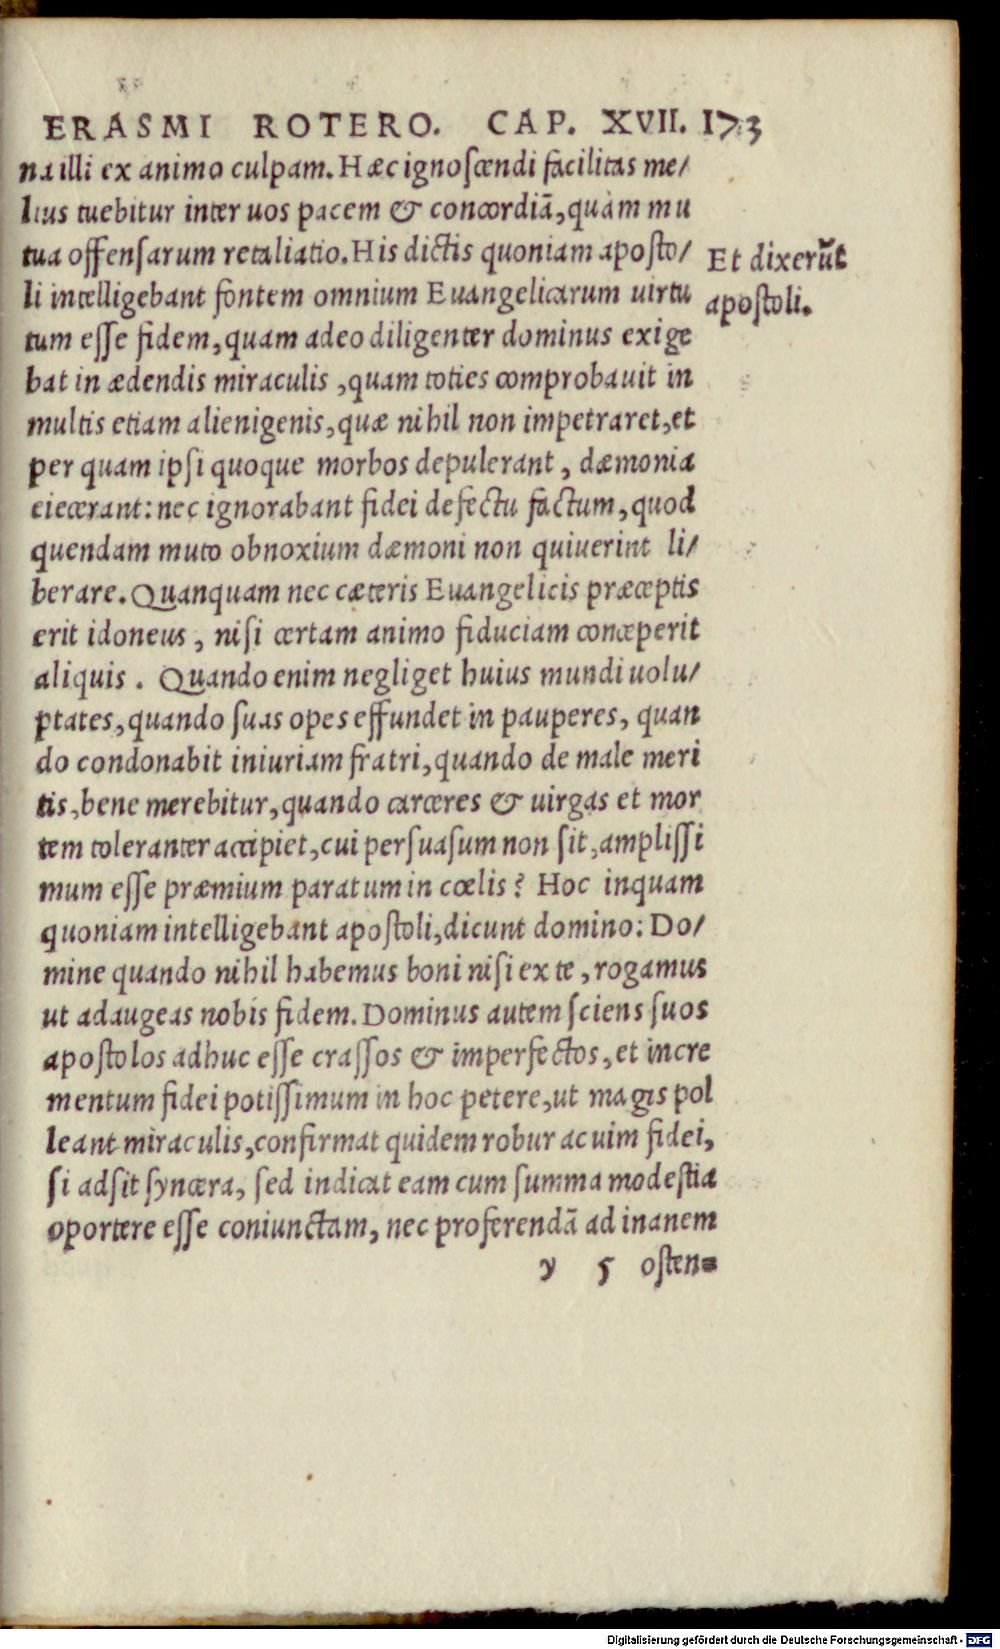 ERASMI ROTERO. CAP. XVII. 173
na illi ex animo culpam. Hæc ignoscendi facilitas me/
lius tuebitur inter uos pacem & concordiā, quàm mu
tua offensarum retaliatio. His dictis quoniam aposto/
li intelligebant fontem omnium Euangelicarum uirtu
tum esse fidem, quam adeo diligenter dominus exige
bat in ædendis miraculis, quam toties comprobauit in
multis etiam alienigenis, quæ nihil non impetraret, et
per quam ipsi quoque morbos depulerant, dæmonia
eiecerant: nec ignorabant fidei defectu factum, quod
quendam muto obnoxium dæmoni non quiuerint li/
berare. Quanquam nec cæteris Euangelicis præceptis
erit idoneus, nisi certam animo fiduciam conceperit
aliquis. Quando enim negliget huius mundi uolu/
ptates, quando suas opes effundet in pauperes, quan
do condonabit iniuriam fratri, quando de male meri
tis, bene merebitur, quando carceres & uirgas et mor
tem toleranter accipiet, cui persuasum non sit, amplissi
mum esse præmium paratum in cœlis? Hoc inquam
quoniam intelligebant apostoli, dicunt domino: Do/
mine quando nihil habemus boni nisi ex te, rogamus
ut adaugeas nobis fidem. Dominus autem sciens suos
apostolos adhuc esse crassos & imperfectos, et incre
mentum fidei potissimum in hoc petere, ut magis pol
leant miraculis, confirmat quidem robur ac uim fidei,
si adsit syncera, sed indicat eam cum summa modestia
oportere esse coniunctam, nec proferendā ad inanem
y 5 osten=
Et dixerūt
apostoli.
Digitalisierung gefördert durch die Deutsche Forschungsgemeinschaft - DFG